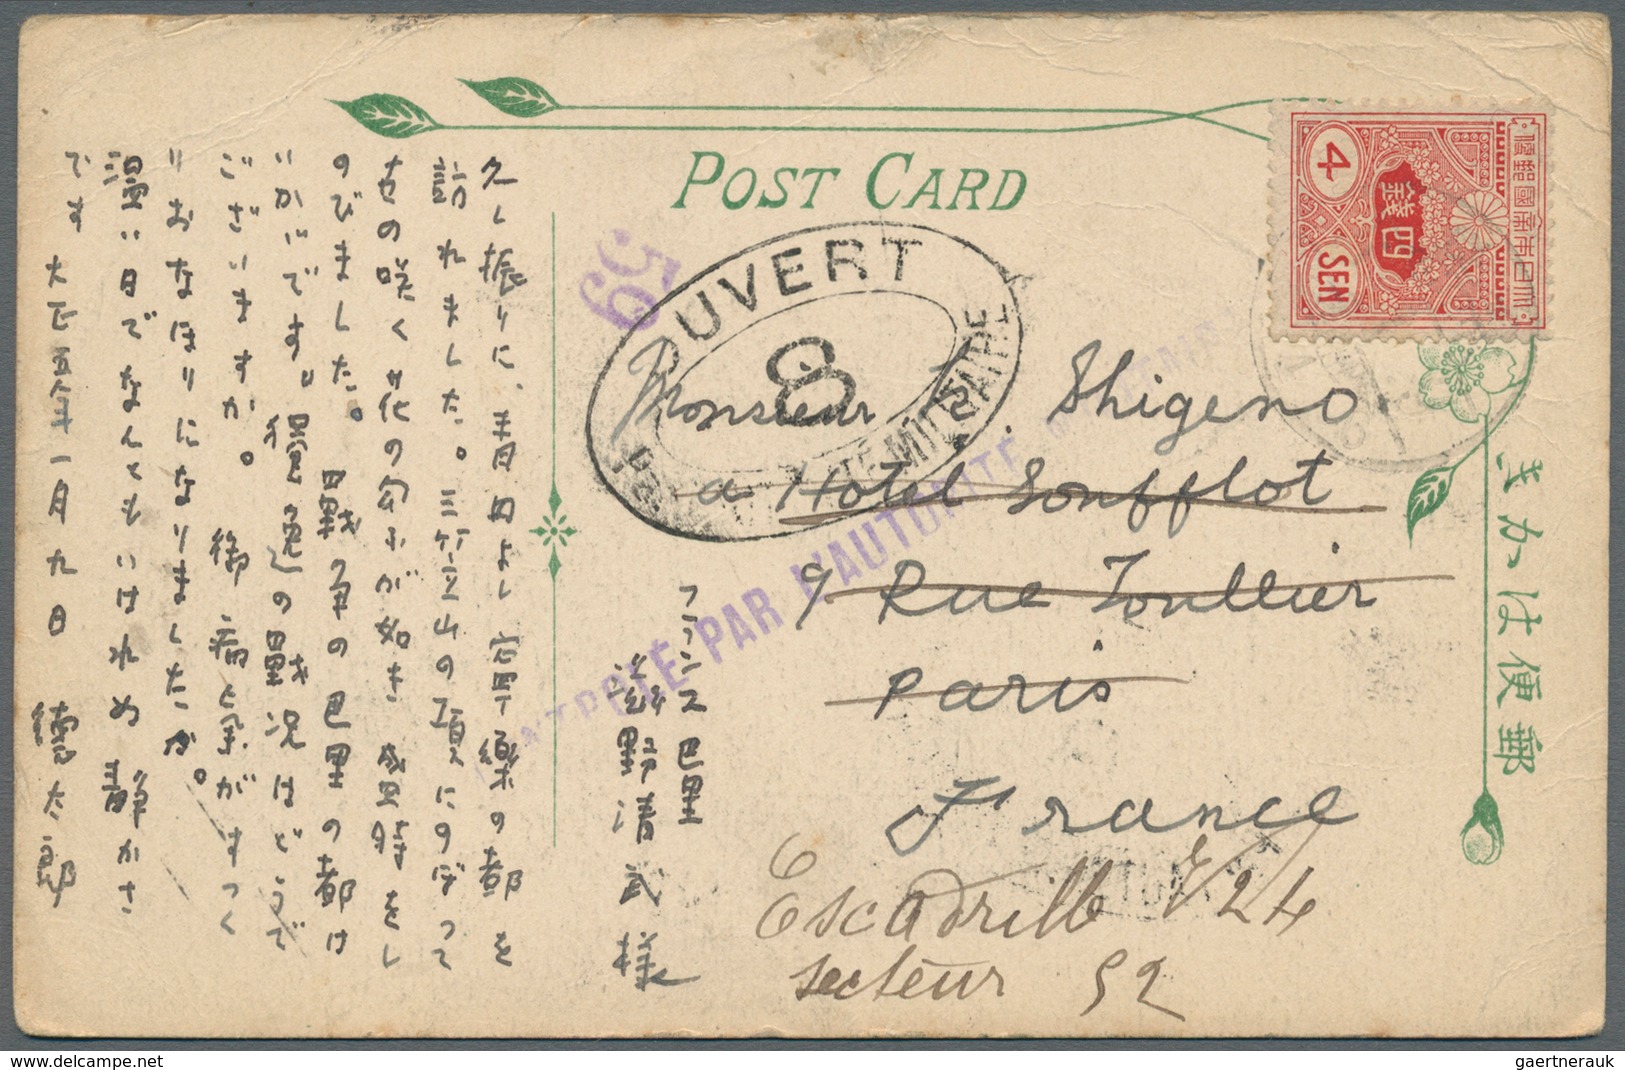 POST CARD
4
SEN
四銭
大日本帝國郵便
きかは便郵
59
OUVERT
8
MILITAIRE
PAR L'AUTORITE
Monsieur K. Shigeno
a Hotel Soufflot
9 Rue Toullier
Paris
France
Escadrille V 24
secteur 92
フランス巴里
滋野清武様
久し振りに、青丹よし寧楽の都を
訪れました。三笠山の頂にのぼって
古の咲く花の匂ふが如き 盛時をし
のびました。 戦争の巴里の都は
いかゞです。 の戦況はどうで
ございますか。 御病気がすつく
りおなほりになりましたか。
温い日でなんともいはれぬ静かさ
です 大正五年一月九日 徳太郎
gaertnerauk.com